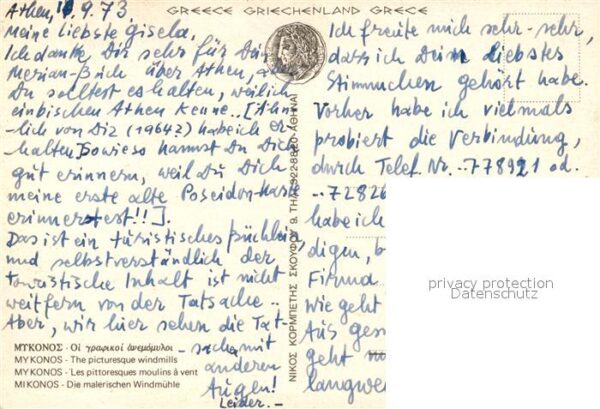 GREECE GRIECHENLAND GRECE
Athen, 9.73
Meine liebste Gisela,
Ich danke Dir sehr für Dein
Merian-Buch über Athen,
Du solltest es halten, weil ich
ein bischen Athen Kenne.. [Ähn-
lich von Dir (1964?) habe ich er-
halten. Sowieso kannst Du Dich
gut erinnern, weil Du Dich
meine erste alte Poseidon-Karte
erinnertest!!].
Das ist ein türistisches büchlein
und selbstverständlich der
touristische Inhalt ist nicht
weit fern von der Tatsache..
Aber, wir hier sehen die Tat-
sache mit
anderen
Augen!
Leider.-
ΜΥΚΟΝΟΣ - Οἱ γραφικοί ἀνεμόμυλοι
MYKONOS - The picturesque windmills
MYKONOS - Les pittoresques moulins à vent
MIKONOS - Die malerischen Windmühle
ΝΙΚΟΣ ΚΟΡΜΠΕΤΗΣ ΣΚΟΥΦΟΥ 9. ΤΗΛ. 322-8820 ΑΘΗΝΑΙ
Ich freute mich sehr-sehr,
dass ich Dein liebstes
Stimmchen gehört habe.
Vorher habe ich vielmals
probiert die Verbindung,
durch Telef. Nr. -778921 od.
..72826
habe ich
digen, b
Firund
Wie geht
Aus ges
geht
langwe
privacy protection
Datenschutz